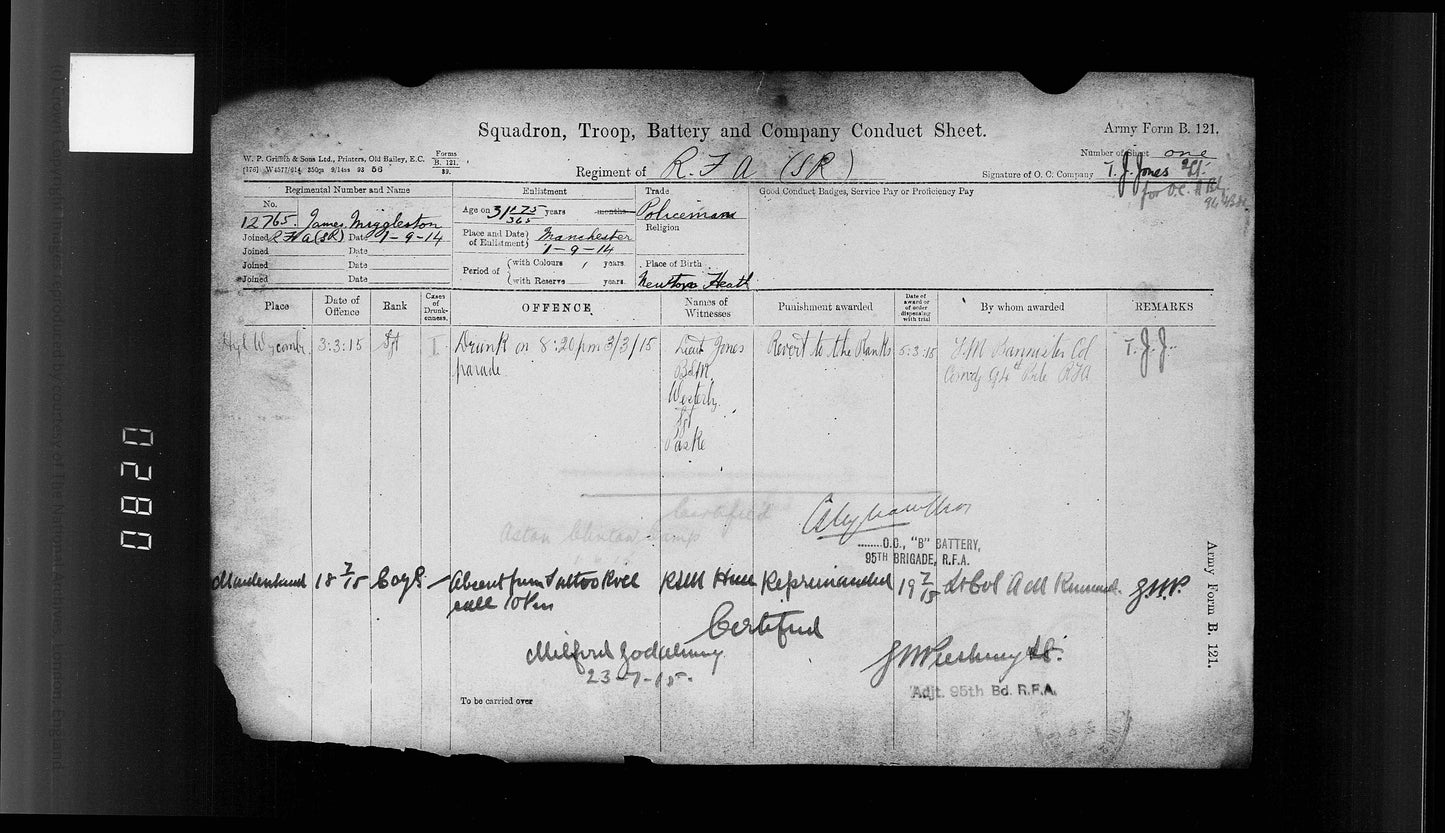 Squadron, Troop, Battery and Company Conduct Sheet.
Army Form B. 121.
W. P. Griffith & Sons Ltd., Printers, Old Bailey, E.C.
Forms
B. 121.
39.
[176] W4577/614 350gs 9/14ss 93 56
Regiment of R. F A (SR)
Number of Sheet one
Signature of O. C. Company T. J. Jones
for O.C.
Regimental Number and Name
No.
12765. James Miggleston
Joined R F A (SR) Date 1-9-14
Joined Date
Joined Date
Joined Date
Enlistment
Age on 31 275/365 years months
Place and Date of Enlistment Manchester
1-9-14
Period of with Colours years.
with Reserve years.
Trade
Policeman
Religion
Place of Birth
Newton Heath
Good Conduct Badges, Service Pay or Proficiency Pay
Place
Date of Offence
Rank
Cases of Drunkenness.
OFFENCE
Names of Witnesses
Punishment awarded
Date of award or of order dispensing with trial
By whom awarded
REMARKS
Hyh Wycombe 3:3:15 Sjt I Drunk on 8:20pm 3/3/15 Lieut Jones Revert to the Ranks 5:3:15 Bannister Col T. J. J.
parade BSM Comdg 94th Bde RFA
Westerby
Sjt
Paske
Certified
Aston Clinton Camp
O.C., "B" BATTERY,
95TH BRIGADE, R.F.A.
18 7/15 Absent from Tattoo Roll RSM Reprimanded 19 7/15 Lt Col
call 10 Pm
Certified
Milford Godalming
23-7-15.
Adjt. 95th Bd. R.F.A.
To be carried over
Army Form B. 121.
0280
(c) Crown Copyright Images reproduced by courtesy of The National Archives, London, England.